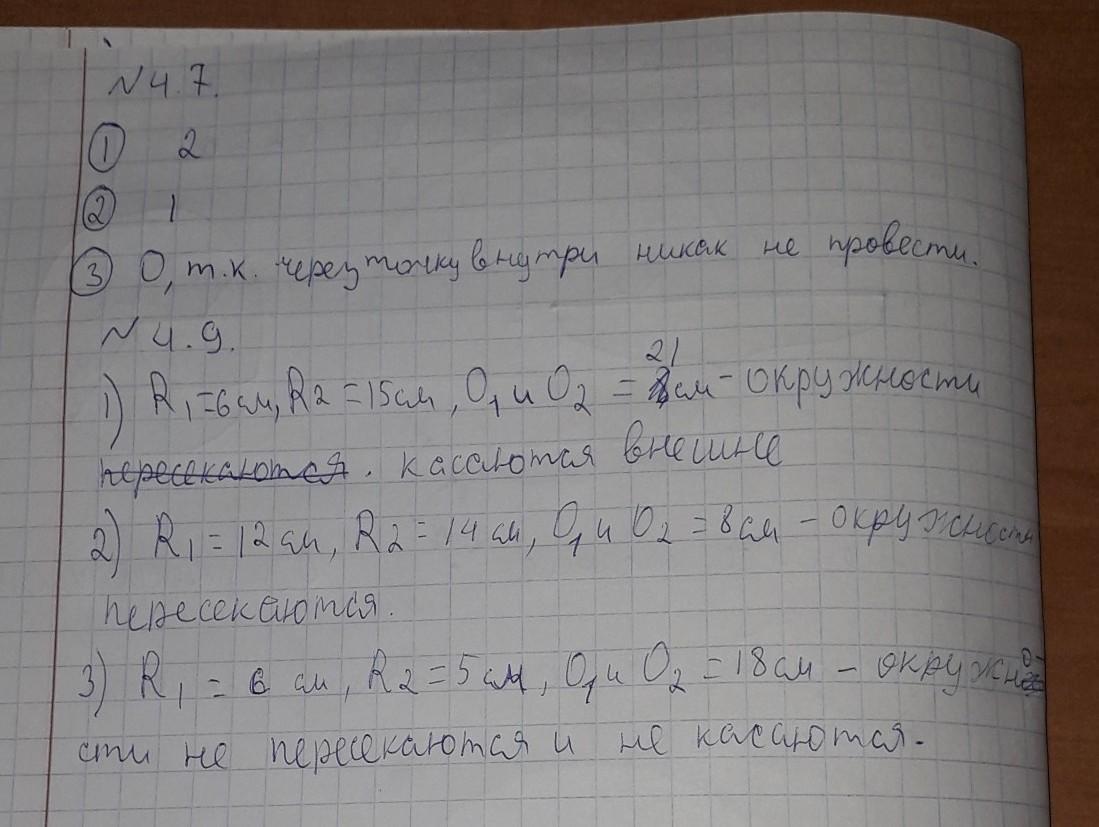 N 4.7.
① 2
② 1
③ 0, т.к. через точку внутри никак не провести.
N 4.9.
1) R₁=6см, R2=15см, O₁ и O₂ = 21см - окружности
пересекаются. касаются внешне
2) R₁=12см, R2=14см, O₁ и O₂=8см - окружности
пересекаются.
3) R₁=6 см, R2=5см, O₁ и O₂=18см - окружно-
сти не пересекаются и не касаются.